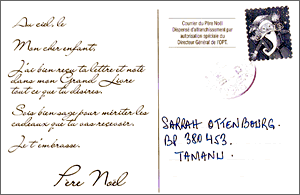 Au ciel, le
Mon cher enfant,
J'ai bien reçu ta lettre et note
dans mon Grand Livre
tout ce que tu désires.
Sois bien sage pour mériter les
cadeaux que tu vas recevoir.
Je t'embrasse.
Père Noël
Courrier du Père Noël
Dispensé d'affranchissement par
autorisation spéciale du
Directeur Général de l'OPT.
SARRAH OTTENBOURG.
BP 380453.
TAMANU.